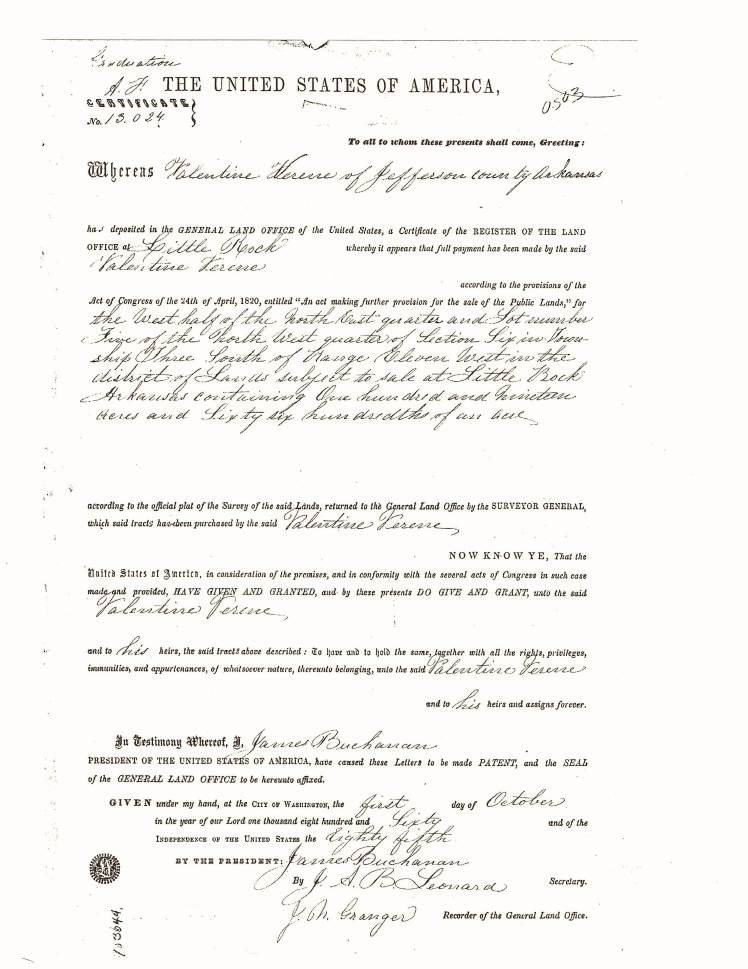 Graduation
A. F. THE UNITED STATES OF AMERICA,
0503
CERTIFICATE
No. 13.024
To all to whom these presents shall come, Greeting:
Whereas Valentine Verene of Jefferson county Arkansas
has deposited in the GENERAL LAND OFFICE of the United States, a Certificate of the REGISTER OF THE LAND
OFFICE at Little Rock whereby it appears that full payment has been made by the said
Valentine Verene
according to the provisions of the
Act of Congress of the 24th of April, 1820, entitled "An act making further provision for the sale of the Public Lands," for
the West half of the North East quarter and Lot number
Five of the North West quarter of Section Six in Town
ship Three South of Range Eleven West in the
district of Lands subject to sale at Little Rock
Arkansas containing One hundred and nineteen
acres and Sixty six hundredths of an acre
according to the official plat of the Survey of the said Lands, returned to the General Land Office by the SURVEYOR GENERAL,
which said tracts has been purchased by the said Valentine Verene,
NOW KNOW YE, That the
United States of America, in consideration of the premises, and in conformity with the several acts of Congress in such case
made and provided, HAVE GIVEN AND GRANTED, and by these presents DO GIVE AND GRANT, unto the said
Valentine Verene,
and to his heirs, the said tracts above described: To have and to hold the same, together with all the rights, privileges,
immunities, and appurtenances, of whatsoever nature, thereunto belonging, unto the said Valentine Verene
and to his heirs and assigns forever.
In Testimony Whereof, I, James Buchanan
PRESIDENT OF THE UNITED STATES OF AMERICA, have caused these Letters to be made PATENT, and the SEAL
of the GENERAL LAND OFFICE to be hereunto affixed.
GIVEN under my hand, at the CITY OF WASHINGTON, the first day of October
in the year of our Lord one thousand eight hundred and Sixty and of the
INDEPENDENCE OF THE UNITED STATES the Eighty fifth
BY THE PRESIDENT: James Buchanan
By J. A. B Leonard Secretary.
J. N. Granger Recorder of the General Land Office.
103644.